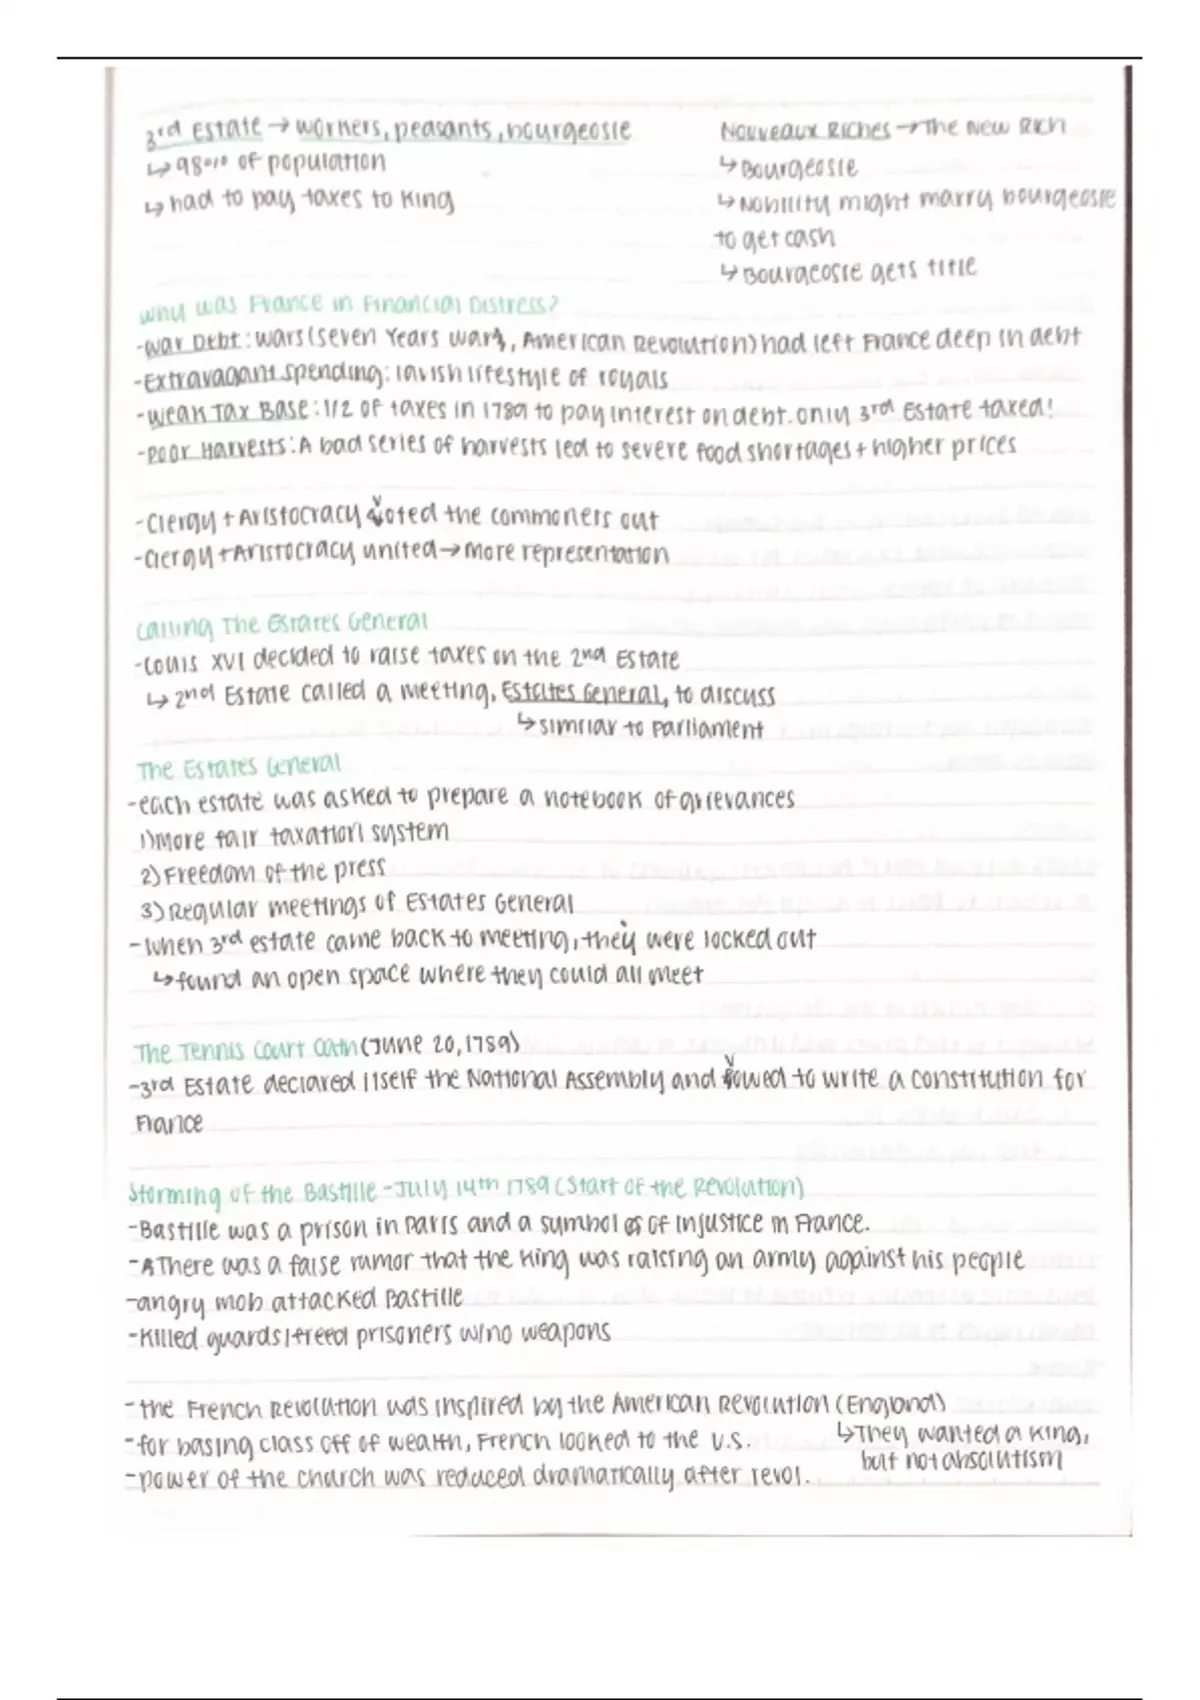 3rd Estate → workers, peasants, bourgeosie
↳ 98% of population
↳ had to pay taxes to King
Nouveaux Riches → The New Rich
↳ Bourgeosie
↳ Nobility might marry bourgeosie
to get cash
↳ Bourgeosie gets title
Why was France in Financial Distress?
-War Debt: wars (Seven Years War, American Revolution) had left France deep in debt
-Extravagant Spending: lavish lifestyle of royals
-Weak Tax Base: 1/2 of taxes in 1789 to pay interest on debt. only 3rd Estate taxed!
-Poor Harvests: A bad series of harvests led to severe food shortages + higher prices
-Clergy + Aristocracy voted the commoners out
-Clergy + Aristocracy united → More representation
Calling The Estates General
-Louis XVI decided to raise taxes on the 2nd Estate
↳ 2nd Estate called a meeting, Estates General, to discuss
↳ similiar to Parliament
The Estates General
-each estate was asked to prepare a notebook of grievances
1) More fair taxation system
2) Freedom of the press
3) Regular meetings of Estates General
-When 3rd estate came back to meeting, they were locked out
↳ found an open space where they could all meet
The Tennis Court Oath (June 20, 1789)
-3rd Estate declared itself the National Assembly and vowed to write a constitution for
France
Storming of the Bastille - July 14th 1789 (Start of the Revolution)
-Bastille was a prison in Paris and a symbol of injustice in France.
-There was a false rumor that the King was raising an army against his people
-angry mob attacked Bastille
-Killed guards/freed prisoners w/no weapons
-the French Revolution was inspired by the American Revolution (England)
↳ They wanted a King,
but not absolutism
-for basing class off of wealth, French looked to the U.S.
-power of the church was reduced dramatically after revol.